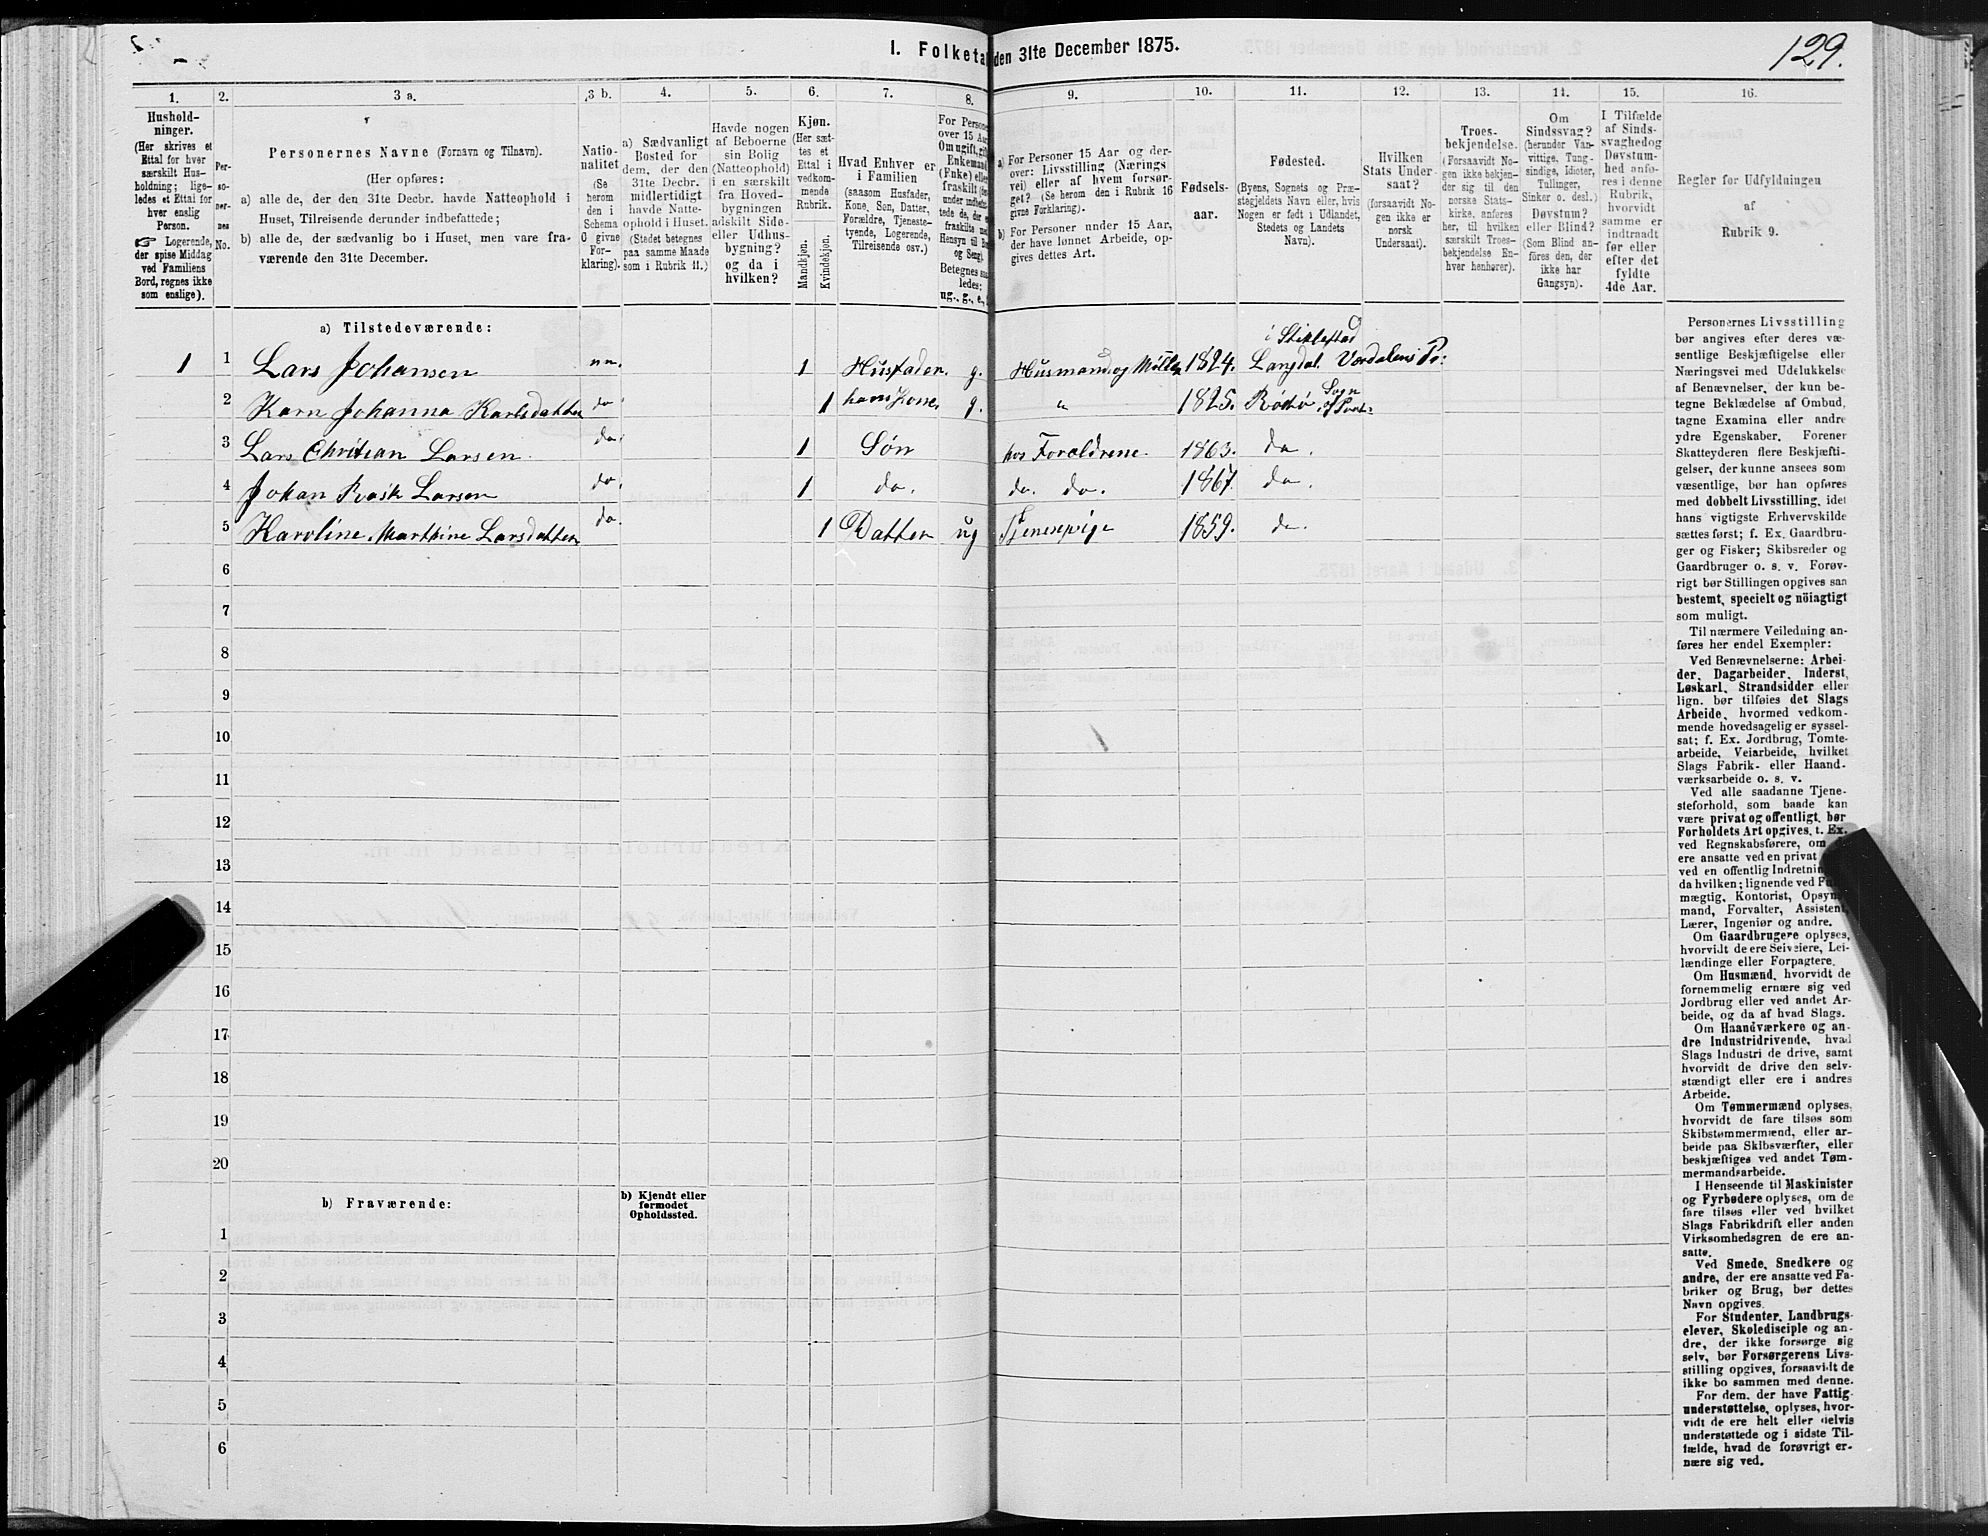 129.
I. Folketa den 31te December 1875.
1. 2. 3 a. 3 b. 4. 5. 6. 7. 8. 9. 10. 11. 12. 13. 14. 15. 16.
Hushold-
ninger.
(Her skrives et
Ettal for hver
særskilt Hus-
holdning; lige-
ledes et Ettal for
hver enslig
Person.
☞ Logerende,
der spise Middag
ved Familiens
Bord, regnes ikke
som enslige).
Per-
so-
ner-
nes
No.
Personernes Navne (Fornavn og Tilnavn).
(Her opføres:
a) alle de, der den 31te Decbr. havde Natteophold i
Huset, Tilreisende derunder indbefattede;
b) alle de, der sædvanlig bo i Huset, men vare fra-
værende den 31te December.
Natio-
nalitet
(Se
herom
den i
Schema
O givne
For-
klaring).
a) Sædvanligt
Bosted for
dem, der den
31te Decbr.
midlertidigt
havde Natte-
ophold i Huset.
(Stedet betegnes
paa samme Maade
som i Rubrik 11.)
Havde nogen
af Beboerne
sin Bolig
(Natteophold)
i en særskilt
fra Hoved-
bygningen
adskilt Side-
eller Udhus-
bygning?
og da i
hvilken?
Kjøn.
(Her sæt-
tes et
Ettal i
vedkom-
mende
Rubrik.
Mandkjøn.
Kvindekjøn.
Hvad Enhver er
i Familien
(saasom Husfader,
Kone, Søn, Datter,
Forældre, Tjeneste-
tyende, Logerende,
Tilreisende osv.)
For Persone
over 15 Aar
Om ugift, gift
Enkemand
(Enke) eller
fraskilt
Betegnes saa
ledes:
ug., g., e.,
a) For Personer 15 Aar og der-
over: Livsstilling (Nærings
vei) eller af hvem forsør-
get? (Se herom den i Rubrik 16
givne Forklaring).
b) For Personer under 15 Aar,
der have lønnet Arbeide, op-
gives dettes Art.
Fødsels-
aar.
Fødested.
(Byens, Sognets og Præ-
stegjeldets Navn eller, hvis
Nogen er født i Udlandet,
Stedets og Landets
Navn).
Hvilken
Stats Under-
saat?
(forsaavidt No-
gen ikke er
norsk
Undersaat).
Troes-
bekjendelse.
(Forsaavidt No-
gen ikke bekjen-
der sig til den
norske Stats-
kirke, anføres
her, til hvilken
særskilt Troes-
bekjendelse En-
hver henhører).
Om
Sindssvag?
(herunder Van-
vittige, Tung-
sindige, Idioter,
Tullinger,
Sinker o. desl.)
Døvstum?
eller Blind?
(Som Blind an-
føres den, der
ikke har
Gangsyn).
I Tilfælde
af Sinds-
svaghedog
Døvstum-
hed anfø-
res i denne
Rubrik,
hvorvidt
samme er
indtraadt
før eller
efter det
fyldte
4de Aar.
Regler for Udfyldningen
af
Rubrik 9.
a) Tilstedeværende:
1 1 Lars Johansen nn. 1 Husfader. g. Husmand og Møller 1824. i Stiklestad Langdal. Værdalens Pr:
2 Karn Johanna Karlsdatter do 1 hans Kone, g. " 1825. Rödö Sogn og Præst:
3 Lars Chritian Larsen. do. 1 Søn hos Forældrene. 1863. do.
4 Johan Rask Larsen do. 1 do. do. do. 1867. do.
5 Karoline Marthine Larsdatter do. 1 Datter ug Tjenespige 1859. do.
6
7
8
9
10
11
12
13
14
15
16
17
18
19
20
b) Fraværende:
b) Kjendt eller
formodet
Opholdssted.
1
2
3
4
5
6
Personernes Livsstilling
bør angives efter deres væ-
sentlige Beskjæftigelse eller
Næringsvei med Udelukkelse
af Benævnelser, der kun be-
tegne Beklædelse af Ombud,
tagne Examina eller andre
ydre Egenskaber. Forener
Skatteyderen flere Beskjæfti-
gelser, der kunne ansees som
væsentlige, bør han opføres
med dobbelt Livsstilling, idet
hans vigtigste Erhvervskilde
sættes først; f. Ex. Gaardbru-
ger og Fisker; Skibsreder og
Gaardbruger o. s. v. Forøv-
rigt bør Stillingen opgives saa
bestemt, specielt og nöiagtigt
som muligt.
Til nærmere Veiledning an-
føres her endel Exempler:
Ved Benævnelserne: Arbei-
der, Dagarbeider, Inderst,
Løskarl, Strandsidder eller
lign. bør tilføies det Slags
Arbeide, hvormed vedkom-
mende hovedsagelig er syssel-
sat; f. Ex. Jordbrug, Tomte-
arbeide, Veiarbeide, hvilket
Slags Fabrik- eller Haand-
værksarbeide o. s. v.
Ved alle saadanne Tjene-
steforhold, som baade kan
være privat og offentligt, bør
Forholdets Art opgives, t. Ex.
ved Regnskabsførere, om
ere ansatte ved en privat
ved en offentlig Indretnin
da hvilken; lignende ved Ful
mægtig, Kontorist, Opsyn
mand, Forvalter, Assistent,
Lærer, Ingeniør og andre.
Om Gaardbrugere oplyses,
hvorvilt de ere Selveiere, Lei-
lændinge eller Forpagtere.
Om Husmænd, hvorvidt de
fornemmelig ernære sig ved
Jordbrug eller ved andet Ar-
beide, og da af hvad Slags.
Om Haandværkere og an-
dre Industridrivende, hvad
Slags Industri de drive, samt
hvorvidt de drive den selv-
stændigt eller ere i andres
Arbeide.
Om Tømmermænd oplyses,
hvorvidt de fare tilsøs som
Skibstømmermænd, eller ar-
beide paa Skibsværfter, eller
beskjæftiges ved andet Tøm-
mermandsarbeide.
I Henseende til Maskinister
og Fyrbødere oplyses, om de
fare tilsøs eller ved hvilket
Slags Fabrikdrift eller anden
Virksomhedsgren de ere an-
satte.
Ved Smede, Snedkere og
andre, der ere ansatte ved Fa-
briker og Brug, bør dettes
Navn opgives.
For Studenter, Landbrugs-
elever, Skoledisciple og an-
dre, der ikke forsørge sig
selv, bør Forsørgerens Livs-
stilling opgives, forsaavidt de
ikke bo sammen med denne.
For dem, der have Fattig-
understøttelse, oplyses, hvor-
vidt de ere helt eller delvis
understøttede og i sidste Til-
fælde, hvad de forøvrigt er-
nære sig ved.